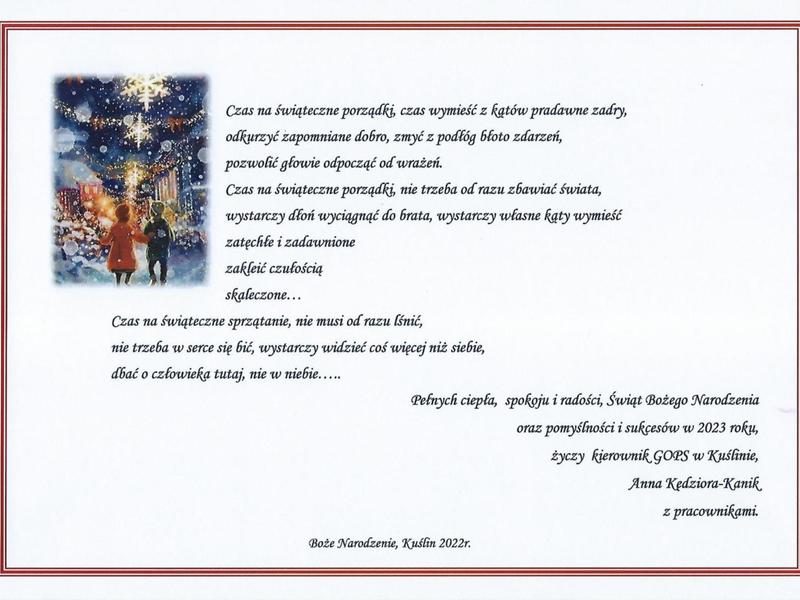 Czas na świąteczne porządki, czas wymieść z kątów pradawne zadry,
odkurzyć zapomniane dobro, zmyć z podłóg błoto zdarzeń,
pozwolić głowie odpocząć od wrażeń.
Czas na świąteczne porządki, nie trzeba od razu zbawiać świata,
wystarczy dłoń wyciągnąć do brata, wystarczy własne kąty wymieść
zatęchłe i zadawnione
zakleić czułością
skaleczone…
Czas na świąteczne sprzątanie, nie musi od razu lśnić,
nie trzeba w serce się bić, wystarczy widzieć coś więcej niż siebie,
dbać o człowieka tutaj, nie w niebie…..
Pełnych ciepła, spokoju i radości, Świąt Bożego Narodzenia
oraz pomyślności i sukcesów w 2023 roku,
życzy kierownik GOPS w Kuślinie,
Anna Kędziora-Kanik
z pracownikami.
Boże Narodzenie, Kuślin 2022r.